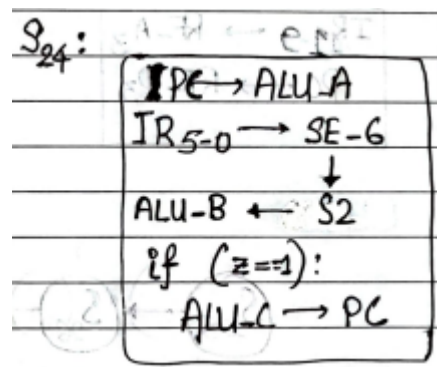 S24:
PC → ALU_A
IR5-0 → SE-6
↓
ALU-B ← S2
if (z==1):
ALU-C → PC